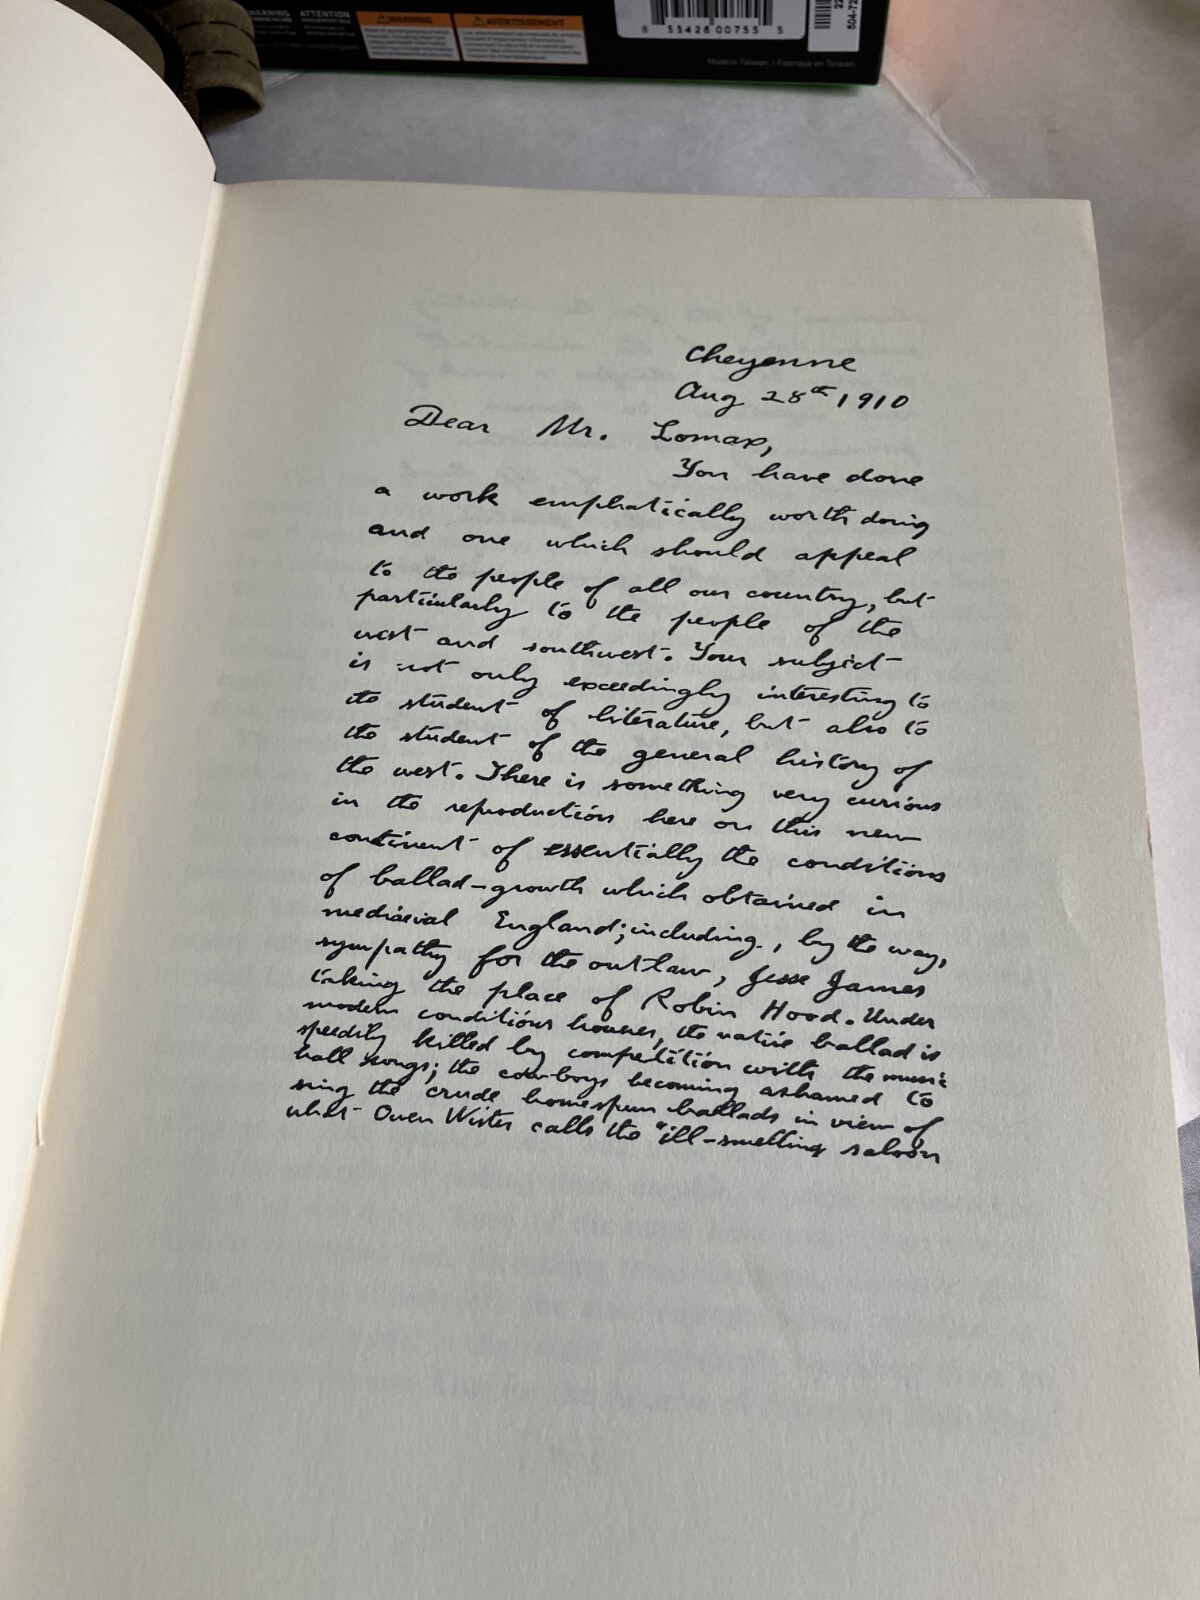 WARNING
ATTENTION
WARNING
AVERTISSEMENT
8 53428 00755 5
Made in Taiwan / Fabriqué en Taiwan
Cheyenne
Aug 28th 1910
Dear Mr. Lomax,
You have done
a work emphatically worth doing
and one which should appeal
to the people of all our country, but
particularly to the people of the
west and southwest. Your subject
is not only exceedingly interesting to
the student of literature, but also to
the student of the general history of
the west. There is something very curious
in the reproduction here on this new
continent of essentially the conditions
of ballad-growth which obtained in
mediæval England; including, by the way,
sympathy for the outlaw, Jesse James
taking the place of Robin Hood. Under
modern conditions however, the native ballad is
speedily killed by competition with the music
hall songs; the cow-boys becoming ashamed to
sing the crude homespun ballads in view of
what Owen Wister calls the "ill-smelling saloon